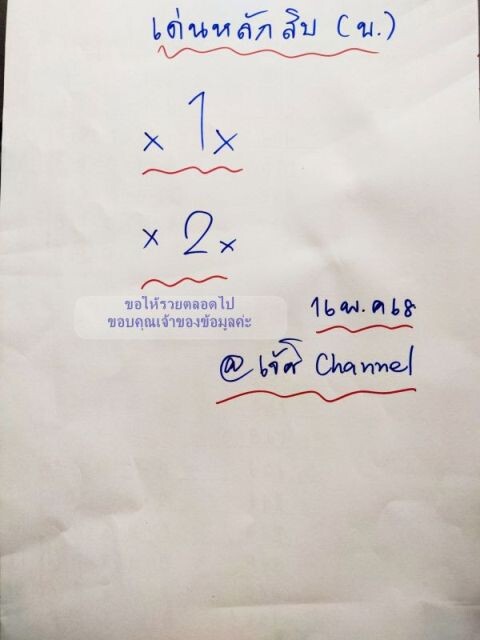 เด่นหลักสิบ (บ.)
x 1 x
x 2 x
ขอให้รวยตลอดไป
ขอบคุณเจ้าของข้อมูลค่ะ
16 พ.ค 68
@ Channel